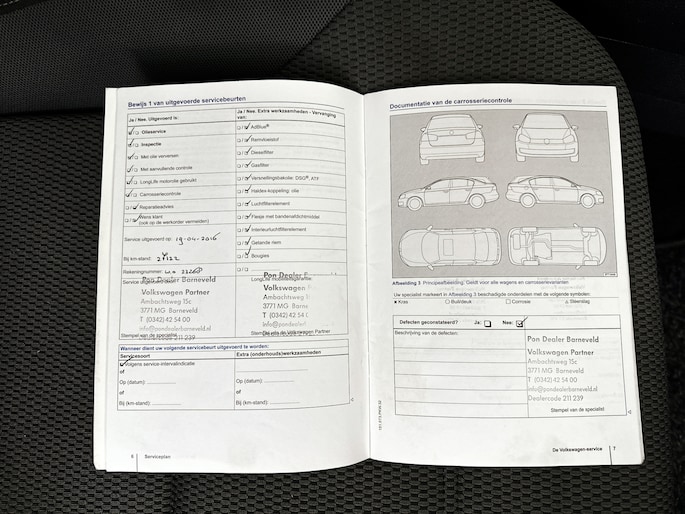 Bewijs 1 van uitgevoerde servicebeurten
Ja / Nee, Uitgevoerd is:
Olieservice
Inspectie
Met olie verversen
Met aanvullende controle
LongLife motorolie gebruikt
Carrosseriecontrole
Reparatieadvies
Wens klant
(ook op de werkorder vermelden)
Service uitgevoerd op: 19-04-2016
Bij km-stand:
Rekeningnummer:
Service uitgevoerd door:
Pon Dealer Barneveld
Volkswagen Partner
Ambachtsweg 15c
3771 MG Barneveld
T (0342) 42 54 00
info@pondealerbarneveld.nl
Dealercode 211 239
Stempel van de specialist
Ja / Nee, Extra werkzaamheden - Vervanging
van:
AdBlue®
Remvloeistof
Dieselfilter
Gasfilter
Versnellingsbakolie: DSG®, ATF
Haldex-koppeling: olie
Luchtfilterelement
Flesje met bandenafdichtmiddel
Interieurluchtfilterelement
Getande riem
Bougies
Pon Dealer
Volkswagen
Ambachtsweg
3771 MG Barne
T (0342) 42 54
info@pondealer
Dealercode 211 239
Stempel van de Volkswagen Partner
Wanneer dient uw volgende servicebeurt uitgevoerd te worden:
Servicesoort
Volgens service-intervalindicatie
of
Op (datum):
of
Bij (km-stand):
Extra (onderhouds)werkzaamheden
of
Op (datum):
of
Bij (km-stand):
6 Serviceplan
Documentatie van de carrosseriecontrole
Afbeelding 3 Principeafbeelding: Geldt voor alle wagens en carrosserievarianten
Uw specialist markeert in Afbeelding 3 beschadigde onderdelen met de volgende symbolen:
× Kras ○ Buil/deuk □ Corrosie △ Steenslag
Defecten geconstateerd? Ja: Nee:
Beschrijving van de defecten:
Pon Dealer Barneveld
Volkswagen Partner
Ambachtsweg 15c
3771 MG Barneveld
T (0342) 42 54 00
info@pondealerbarneveld.nl
Dealercode 211 239
Stempel van de specialist
De Volkswagen-service 7